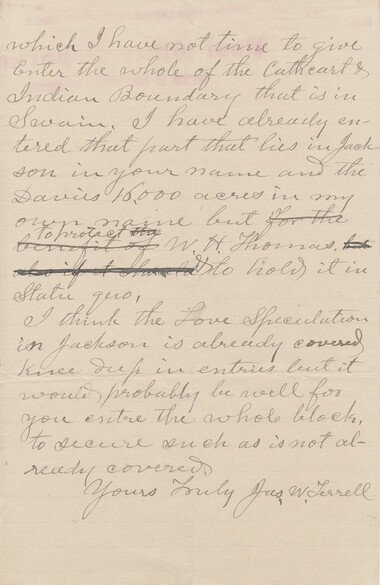 which I have not time to give
Enter the whole of the Cathcart &
Indian Boundary that is in
Swain. I have already en-
tered that part that lies in Jack
son in your name and the
Davies 16,000 acres in my
own name but for the
to protect
benefit of W. H. Thomas,
& to hold it in
Statu quo,
I think the Love Speculation
in Jackson is already covered
knee deep in entries but it
would probably be well for
you entre the whole block,
to secure such as is not al-
ready covered
Yours Truly Jas. W. Terrell